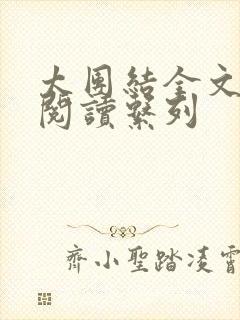 大团結全文
閱讀繫列
齊小聖踏凌霄